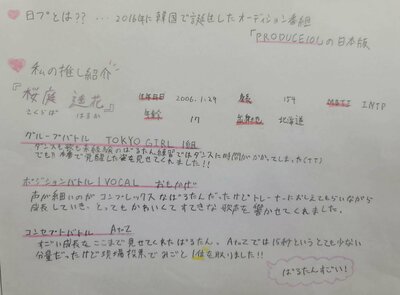 日プとは?? ... 2016年に韓国で誕生したオーディション番組
「PRODUCE101」の日本版
私の推し紹介
『桜庭 遥花』
さくらば はるか
生年月日 2006.1.29 身長 159 MBTI INTP
年齢 17 出身地 北海道
グループバトル TOKYO GIRL 1組
ダンスも歌も未経験のはるたん。練習ではダンスに時間がかかってしまった(TT)
でも!本番で見違えた姿を見せてくれました!!
ポジションバトル VOCAL おもかげ
声が細いのがコンプレックスなはるたんだったけどトレーナーにおしえてもらいながら
成長していき、とってもかわいくてすてきな歌声を響かせてくれました。
コンセプトバトル AtoZ
すごい成長をここまで見せてくれたはるたん。AtoZでは15秒というとても少ない
分量だったけど現場投票でみごと1位を取りました!!
はるたんすごい!